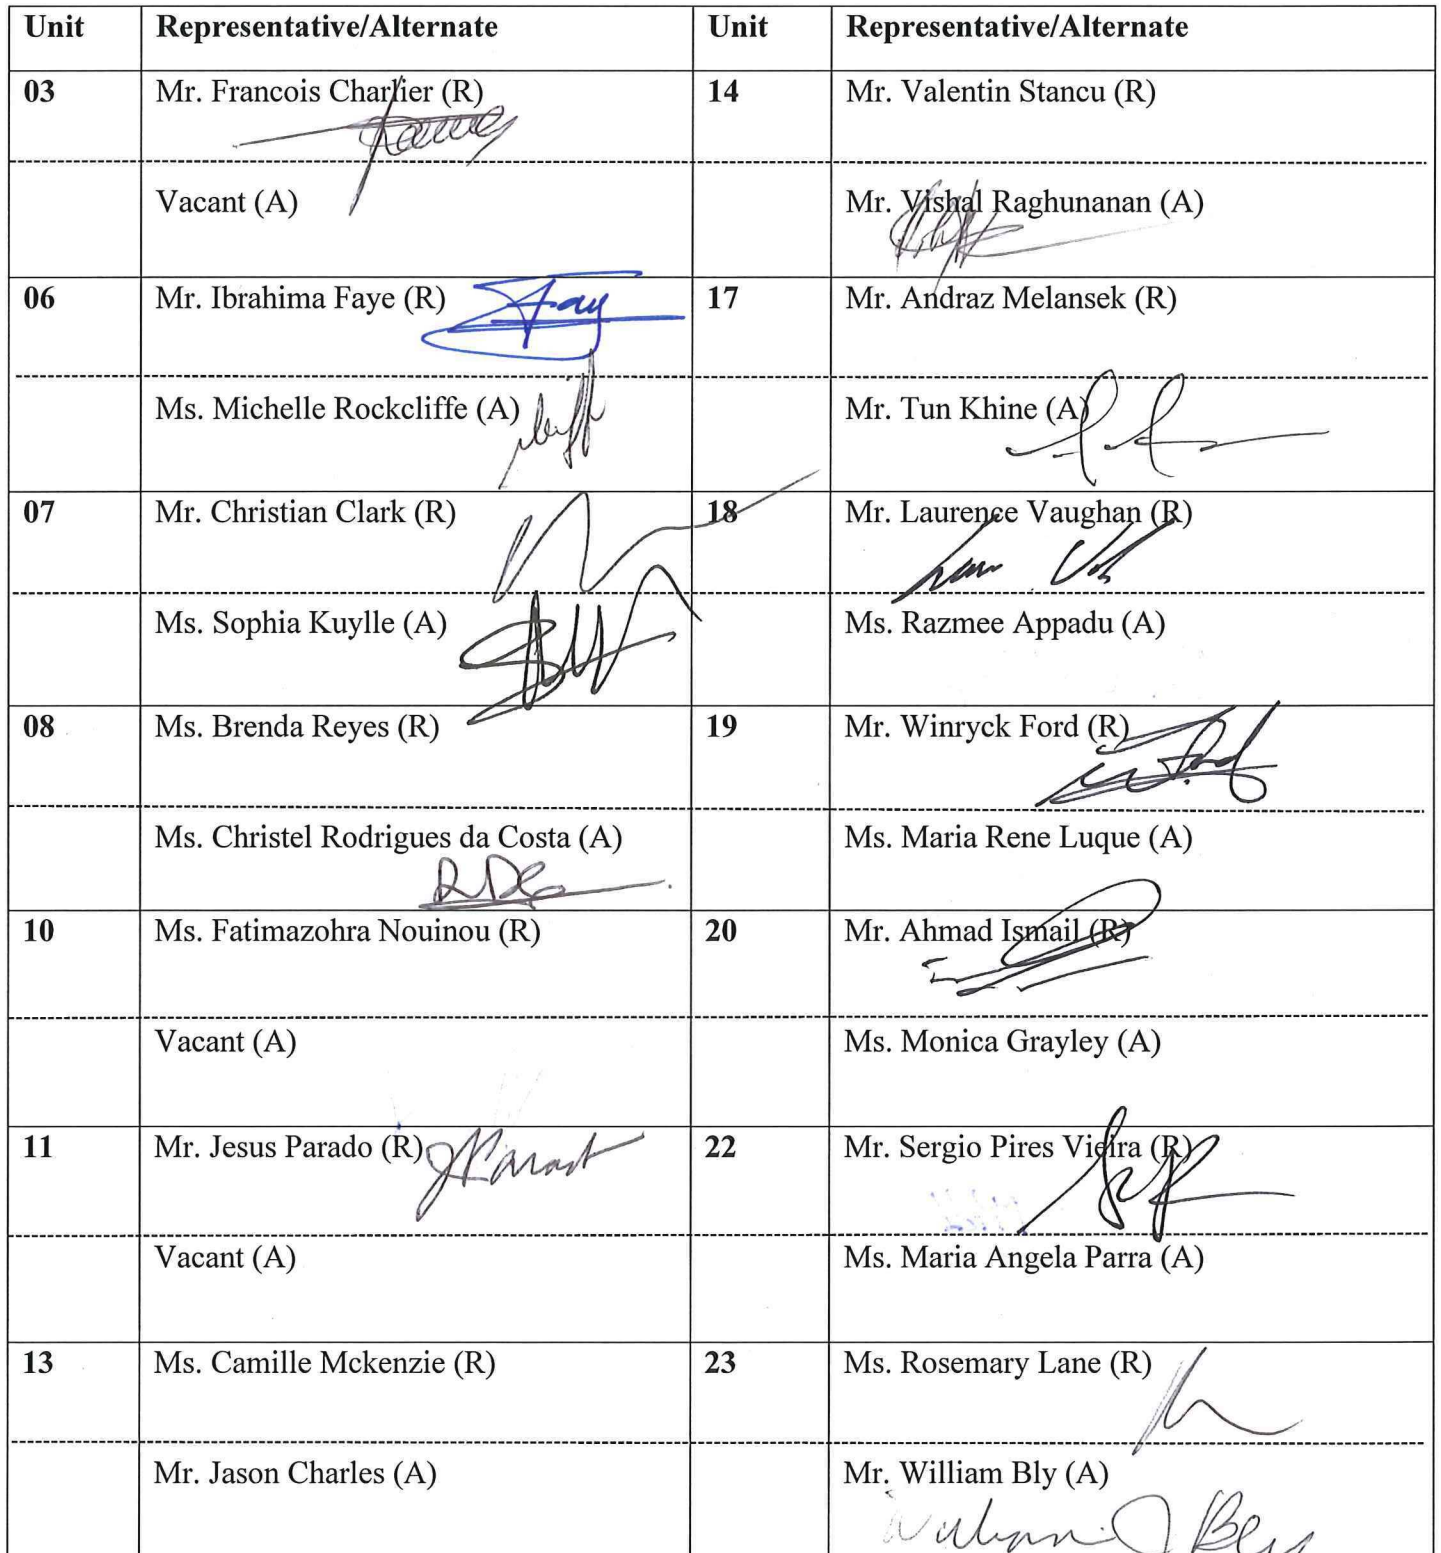 Unit Representative/Alternate Unit Representative/Alternate
03 Mr. Francois Charlier (R) 14 Mr. Valentin Stancu (R)
Vacant (A) Mr. Vishal Raghunanan (A)
06 Mr. Ibrahima Faye (R) 17 Mr. Andraz Melansek (R)
Ms. Michelle Rockcliffe (A) Mr. Tun Khine (A)
07 Mr. Christian Clark (R) 18 Mr. Laurence Vaughan (R)
Ms. Sophia Kuylle (A) Ms. Razmee Appadu (A)
08 Ms. Brenda Reyes (R) 19 Mr. Winryck Ford (R)
Ms. Christel Rodrigues da Costa (A) Ms. Maria Rene Luque (A)
10 Ms. Fatimazohra Nouinou (R) 20 Mr. Ahmad Ismail (R)
Vacant (A) Ms. Monica Grayley (A)
11 Mr. Jesus Parado (R) 22 Mr. Sergio Pires Vieira (R)
Vacant (A) Ms. Maria Angela Parra (A)
13 Ms. Camille Mckenzie (R) 23 Ms. Rosemary Lane (R)
Mr. Jason Charles (A) Mr. William Bly (A)
William J Bly